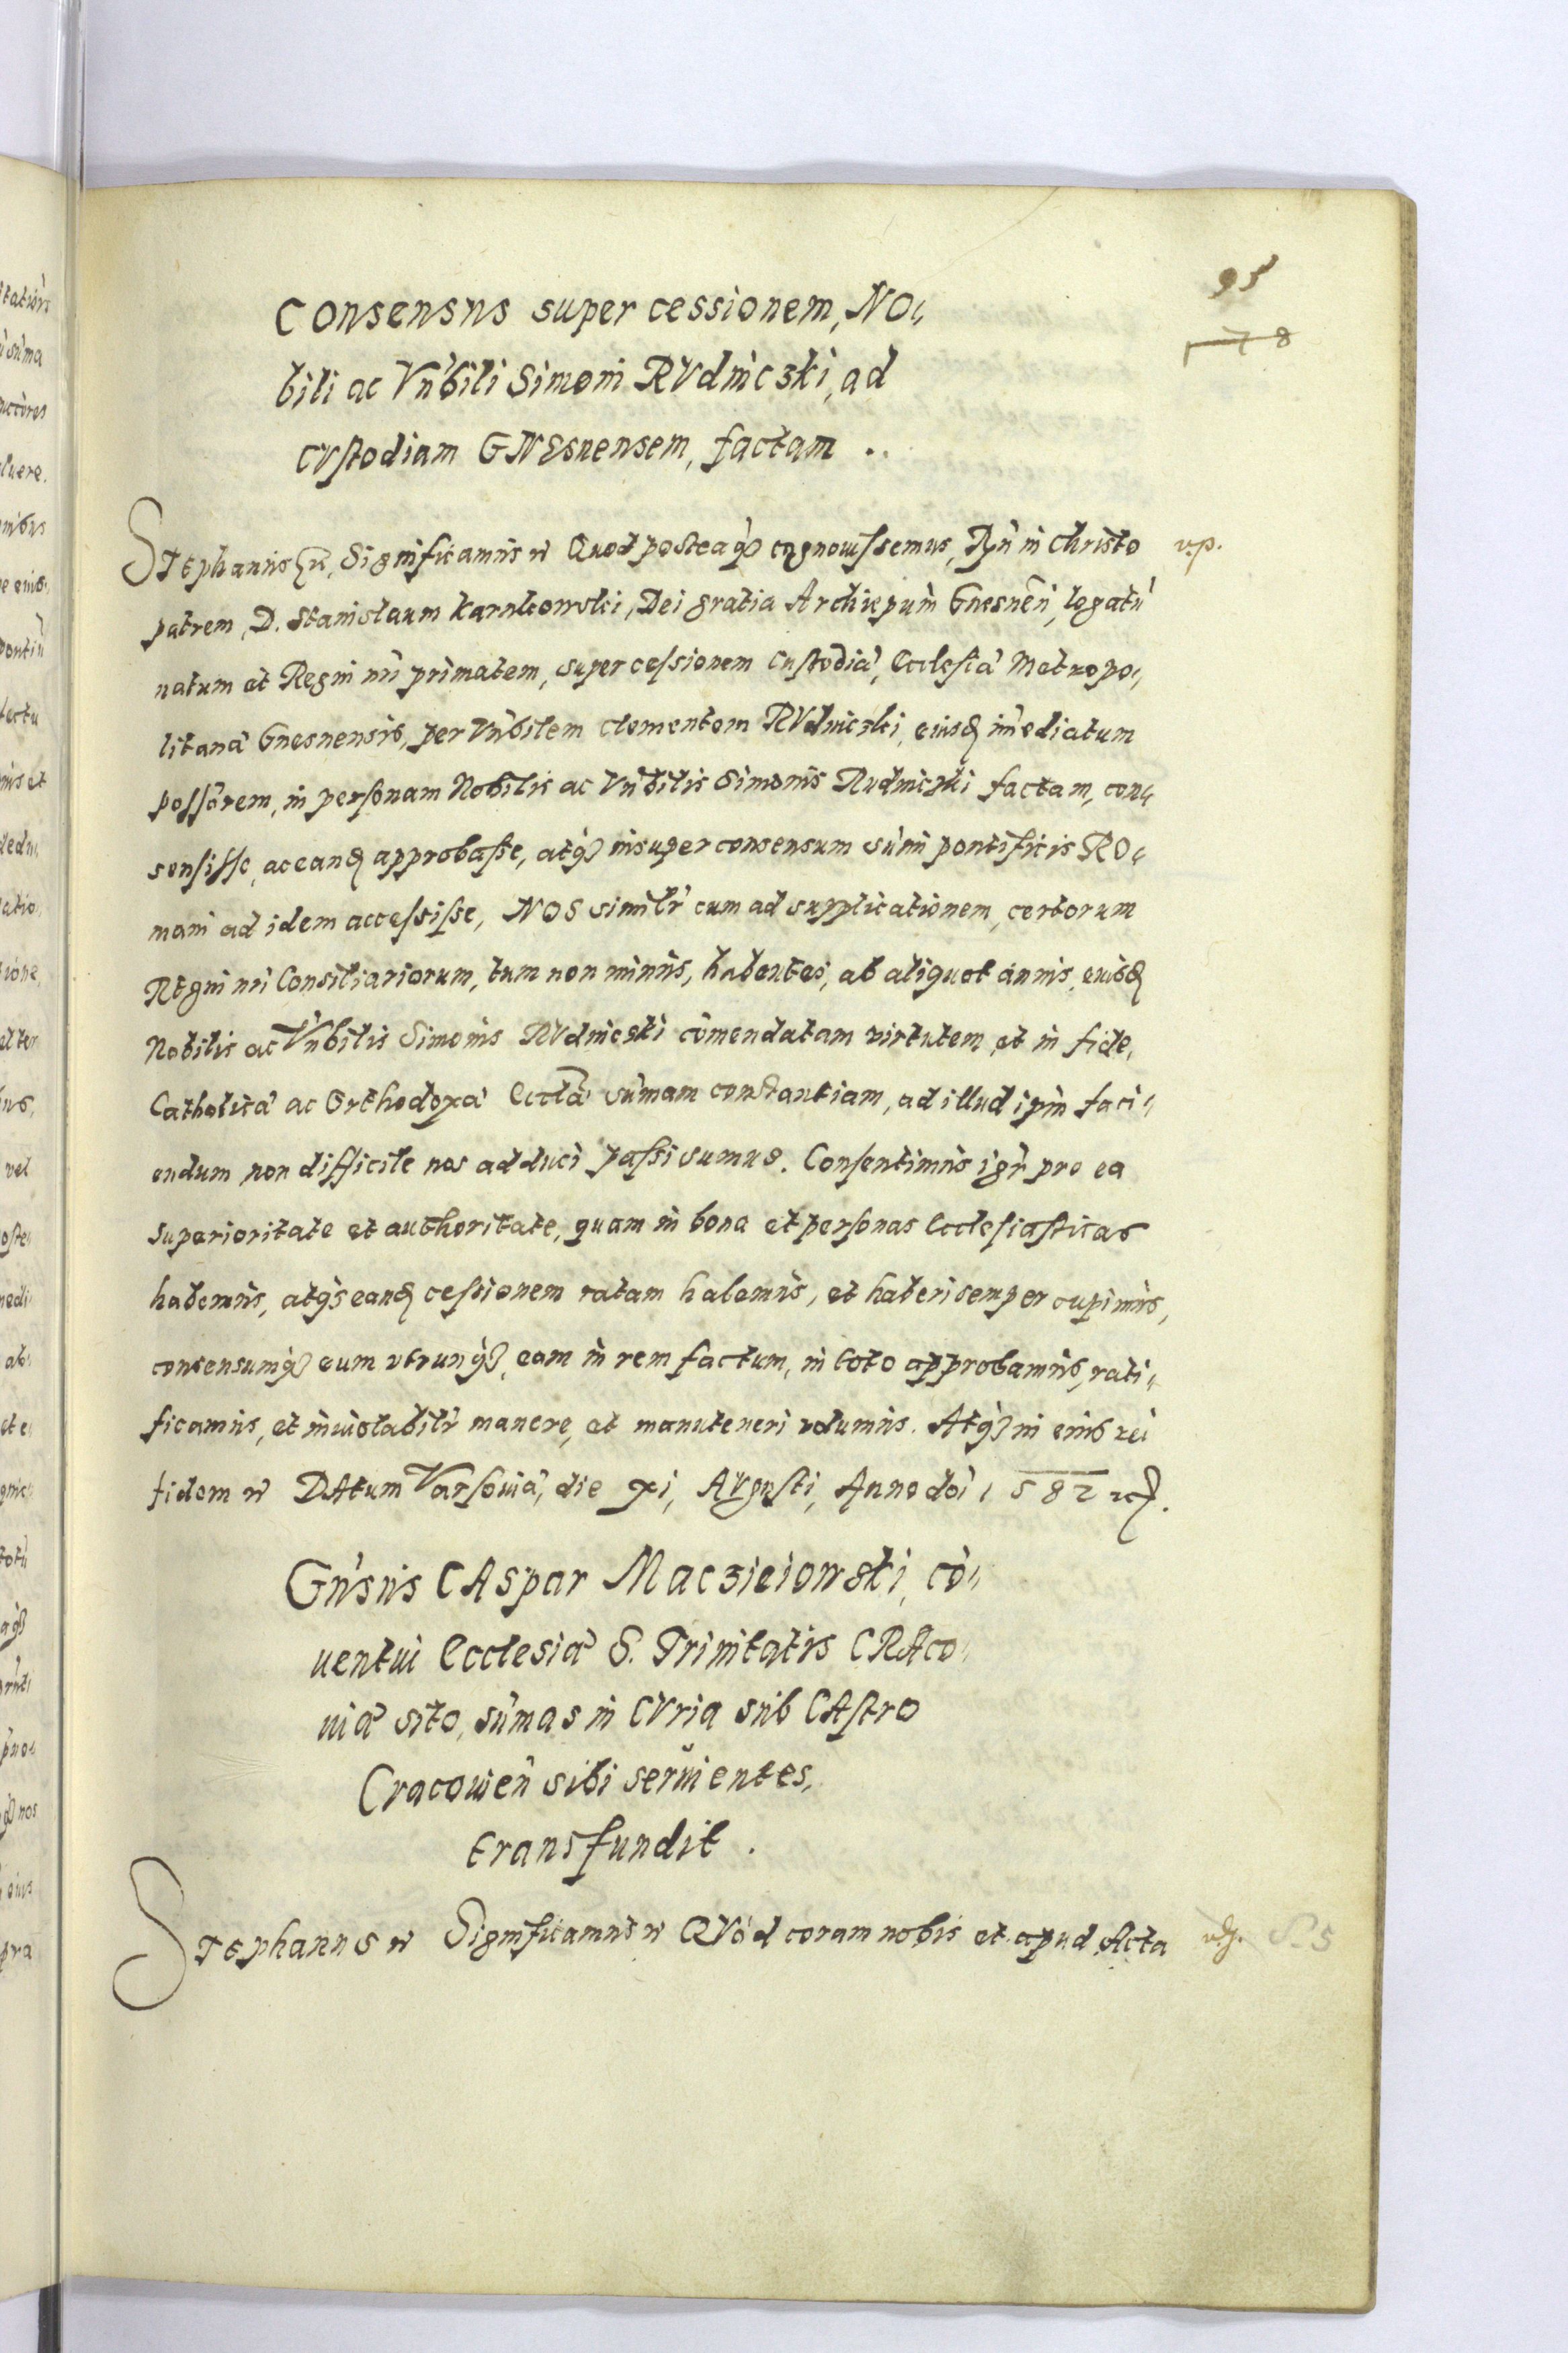 95
178
Consensus super cessionem, No„
bili ac Vn̄bili Simoni RVdniczki, ad
CVstodiam GNEsnensem, factam ..
STEphanus etc, Significamus etc Quod posteaq3 cognouissemus, Rn̄ in Christo v.p.
patrem, D. Stanislaum Karnkowski, Dei gratia Archiepūm Gnesnēn, legatū
natum et Regni nr̄i primatem, super cessionem Custodiæ, Ecclesiæ Metropo„
litanæ Gnesnensis, per Vn̄bilem Clementem RVdniczki, eiusq3 im̄ediatum
possōrem, in personam Nobilis ac Vn̄bilis Simonis Rudniczki factam, con„
sensisse, ac eandq3 approbasse, atq3 insuper consensum sum̄i pontificis Ro„
mani ad idem accessisse, NOS similr̄ cum ad supplicationem, certorum
Regni nr̄i Consiliariorum, tum non minus, habentes, ab aliquot annis, eiusdq3
Nobilis ac Vn̄bilis Simonis RVdniczki com̄endatam virtutem, et in fide,
Catholica ac Orthodoxa Eccl̄a sum̄am constantiam, ad illud ip̄m faci„
endum non difficile nos adduci passi sumus. Consentimus igr̄ pro ea
superioritate et authoritate, quam in bona et personas Ecclesiasticas
habemus, atq3 eandq3 cessionem ratam habemus, et haberi semper cupimus,
consensumq3 eum vtrunq3, eam in rem factum, in toto approbamus, rati„
ficamus, et inuiolabilr̄ manere, et manuteneri volumus. Atq3 in eius rei
fidem etc DAtum Varsouiæ, die xi, AVgusti, Anno dōi 1582 etc.
Gn̄sus CAspar Maczieiowski, cō„
uentui Ecclesiæ S. Trinitatis CRAco„
uiæ sito, sum̄as in CVria sub CAstro
Cracouien̄ sibi seruientes,
transfundit.
STEphanus etc Significamus etc QVod coram nobis et apud Acta